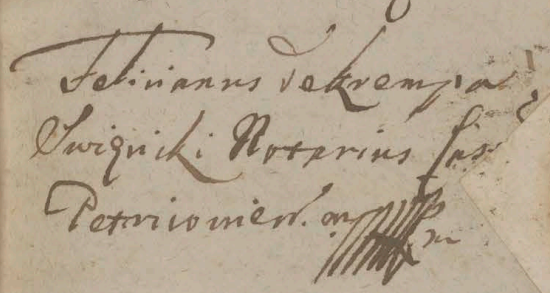 Felicianus de Krempa
Swiynicki Notarius Cas
Petricovien.